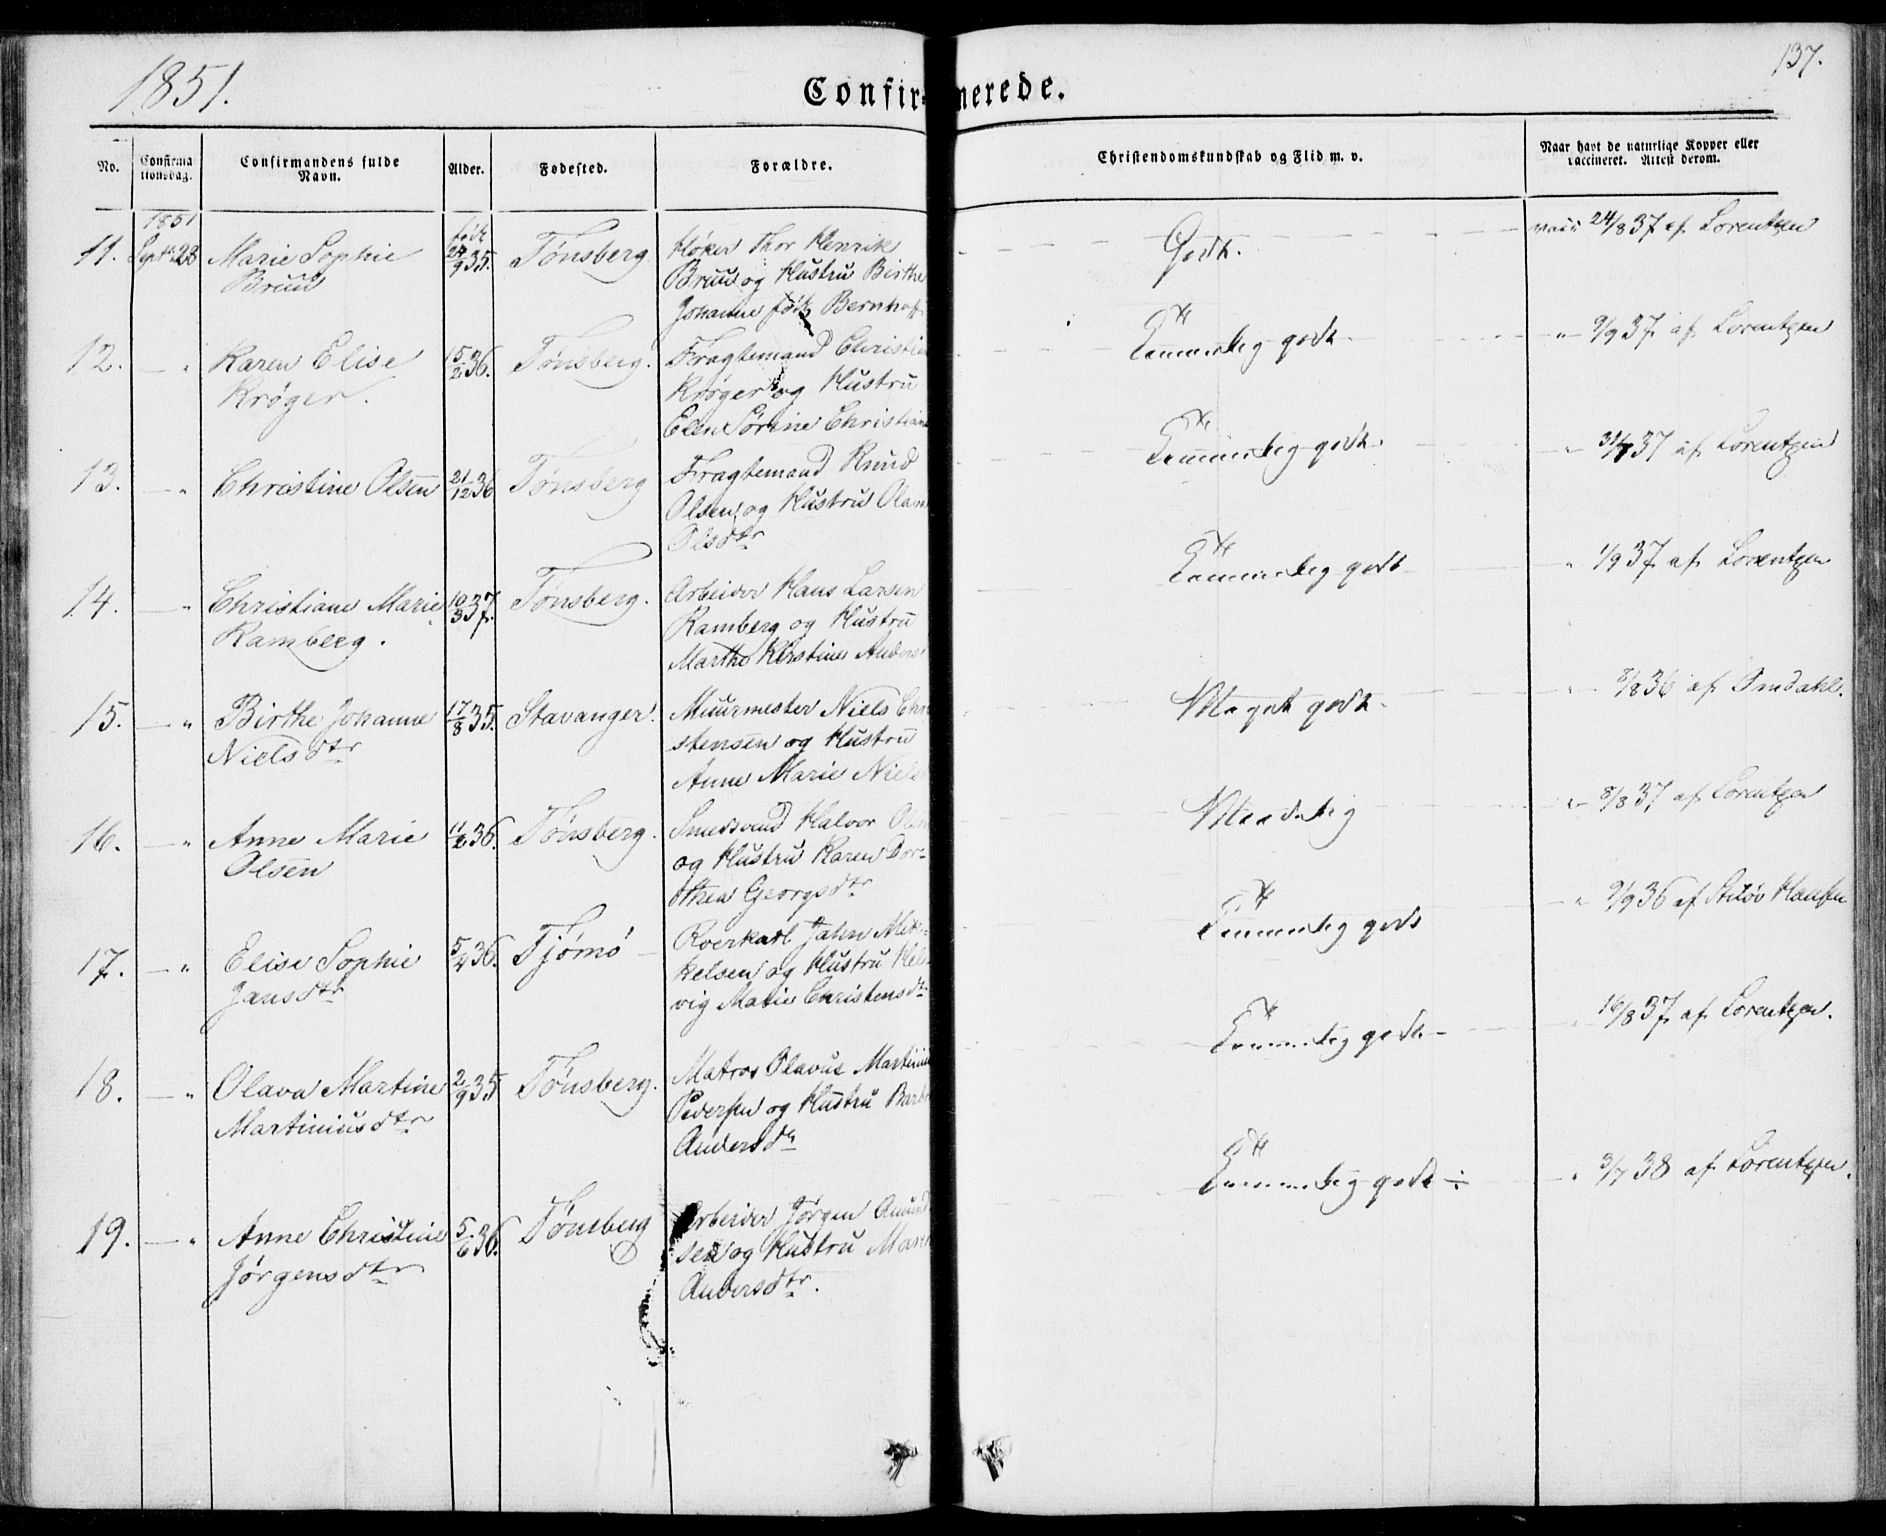 1851.
Confirmerede.
137.
No.
Confirma
tionsdag.
Confirmandens fulde
Navn.
Alder.
Fødested.
Forældre.
Christendomskundskab og Flid m. v.
Naar havt de naturlige Kopper eller
vaccineret. Attest derom.
1851
11. Septbr 28 Marie Sophie
Bruu
født
24/9 35. Tønsberg.
Høker Thor Henrik
Bruu og Hustru Birthe
Johanne født Bernhoft
Godt.
vacc 24/8 37 af Lorentzen
12. — " Karen Elise
Krøger.
15/2 36. Tønsberg.
Fragtemand Christian
Krøger og Hustru
Elen Sørine Christian
Temmelig godt.
" 9/9 37. af Lorentzen
13. — " Christine Olsen 21/12 36 Tønsberg
Fragtemand Knud
Olsen og Hustru Olam
Olsdtr
Temmelig godt.
" 31/7 37 af Lorentzen
14. — " Christiane Marie
Ramberg.
10/3 37. Tønsberg.
Arbeider Hans Larsen
Ramberg og Hustru
Marthe Kirstine Anders
Temmelig godt
" 1/9 37 af Lorentzen
15. — " Birthe Johanne
Nielsdtr
17/8 35. Stavanger.
Muurmester Niels Chri
stensen og Hustru
Anne Marie Niels
Meget godt.
" 8/8 36 af Omdahl.
16. — " Anne Marie
Olsen
11/2 36. Tønsberg.
Smedsvend Halvor Olsen
og Hustru Karen Dor-
thea Georgsdtr
Maadelig
" 8/8 37 af Lorentzen
17. — " Elise Sophie
Jansdtr
5/4 36. Tjømø
Roerkarl Jahn Mik-
kelsen og Hustru Hel-
vig Marie Christensdtr
Temmelig godt
" 9/9 36 af Hansen
18. — " Olava Martine
Martiniusdtr
2/9 35 Tønsberg.
Matros Olavus Martinius
Pedersen og Hustru Barb
Andersdtr
Temmelig godt.
" 16/8 37. af Lorentzen.
19. — " Anne Christine
Jørgensdtr
5/6 36. Tønsberg
Arbeider Jørgen Amund
sen og Hustru Maren
Andersdtr.
Temmelig godt ÷
" 3/7 38 af Lorentzen.